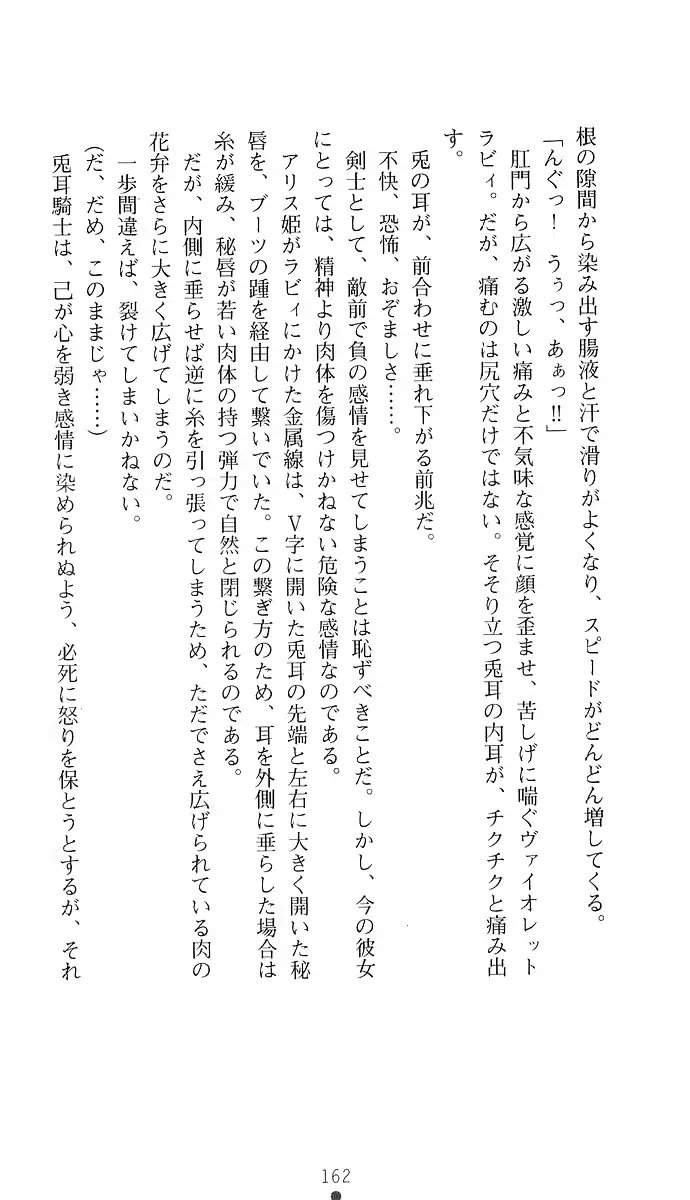 根の隙間から染み出す腸液と汗で滑りがよくなり、スピードがどんどん増してくる。
「んぐっ！　うぅっ、あぁっ‼」
肛門から広がる激しい痛みと不気味な感覚に顔を歪ませ、苦しげに喘ぐヴァイオレット
ラビィ。だが、痛むのは尻穴だけではない。そそり立つ兎耳の内耳が、チクチクと痛み出
す。
兎の耳が、前合わせに垂れ下がる前兆だ。
不快、恐怖、おぞましさ……。
剣士として、敵前で負の感情を見せてしまうことは恥ずべきことだ。しかし、今の彼女
にとっては、精神より肉体を傷つけかねない危険な感情なのである。
アリス姫がラビィにかけた金属線は、Ｖ字に開いた兎耳の先端と左右に大きく開いた秘
唇を、ブーツの踵を経由して繋いでいた。この繋ぎ方のため、耳を外側に垂らした場合は
糸が緩み、秘唇が若い肉体の持つ弾力で自然と閉じられるのである。
だが、内側に垂らせば逆に糸を引っ張ってしまうため、ただでさえ広げられている肉の
花弁をさらに大きく広げてしまうのだ。
一歩間違えば、裂けてしまいかねない。
(だ、だめ、このままじゃ……)
兎耳騎士は、己が心を弱き感情に染められぬよう、必死に怒りを保とうとするが、それ
162